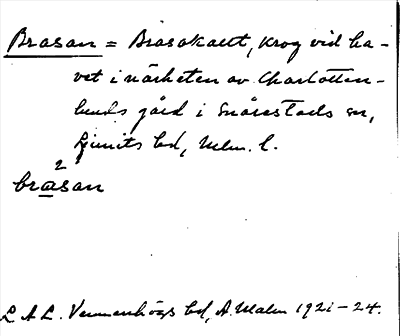 Brasan = Brasakallt, krog vid ha-
vet i närheten av Charlotten-
lunds gård i Snårestads sn,
Ljunits hd, Malm. l.
2
brasan
L. A. L. Vemmenhögs hd, A. Malm 1921-24.